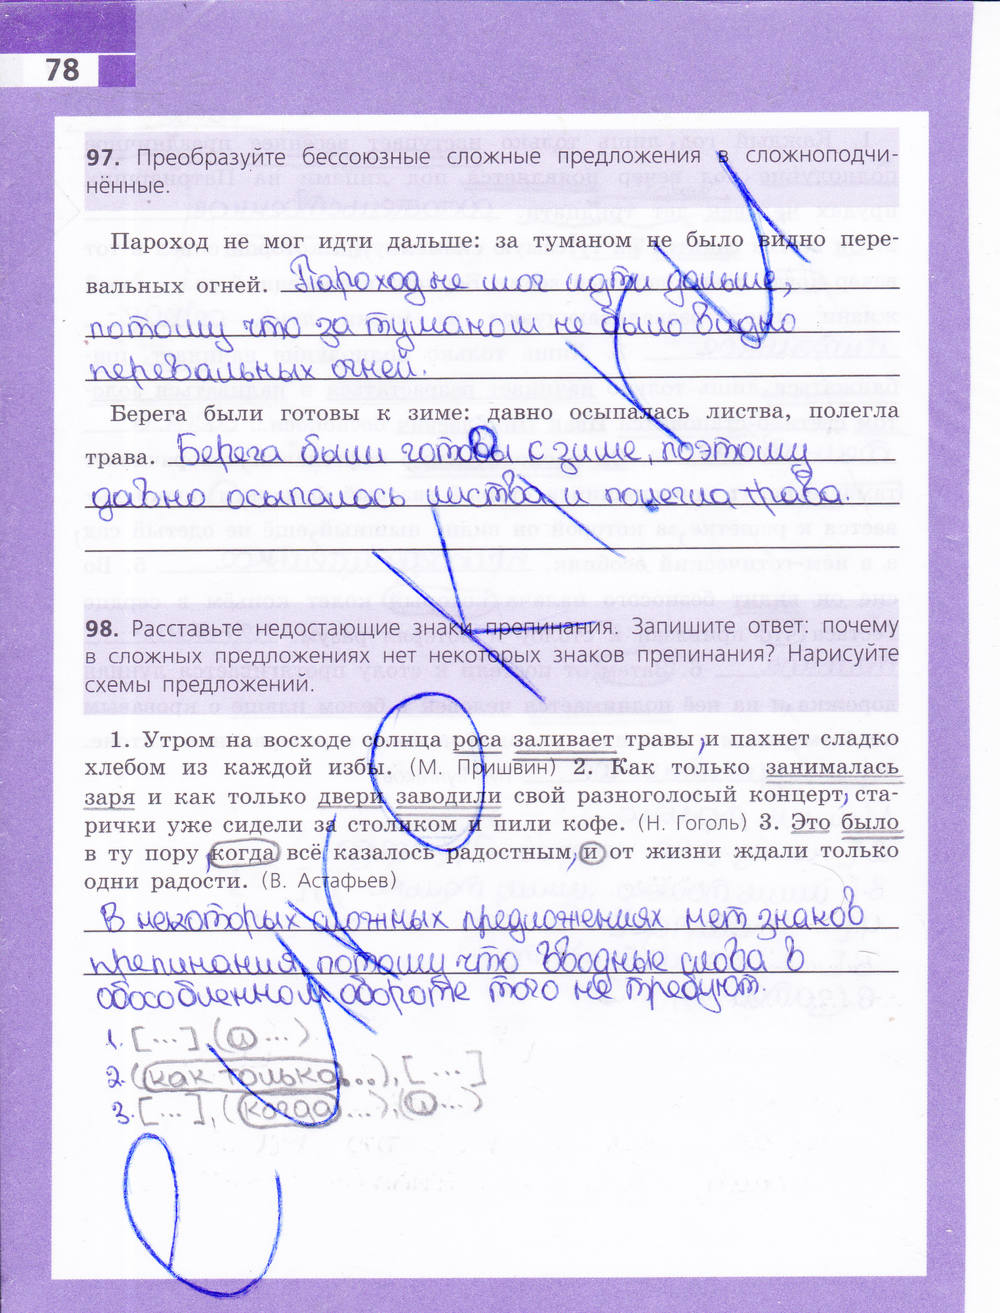 78
97. Преобразуйте бессоюзные сложные предложения в сложноподчи-
нённые.
Пароход не мог идти дальше: за туманом не было видно пере-
вальных огней. Пароход не мог идти дальше,
потому что за туманом не было видно
перевальных огней.
Берега были готовы к зиме: давно осыпалась листва, полегла
трава. Берега были готовы с зиме, поэтому
давно осыпалось листва и полегла трава.
98. Расставьте недостающие знаки препинания. Запишите ответ: почему
в сложных предложениях нет некоторых знаков препинания? Нарисуйте
схемы предложений.
1. Утром на восходе солнца роса заливает травы, и пахнет сладко
хлебом из каждой избы. (М. Пришвин) 2. Как только занималась
заря и как только двери заводили свой разноголосый концерт, ста-
рички уже сидели за столиком и пили кофе. (Н. Гоголь) 3. Это было
в ту пору, когда всё казалось радостным, и от жизни ждали только
одни радости. (В. Астафьев)
В некоторых сложных предложениях нет знаков
препинания, потому что вводные слова в
обособленном обороте того не требуют.
1. [...], (и ...)
2. (как только...), [...]
3. [...], (когда ...), (и ...)